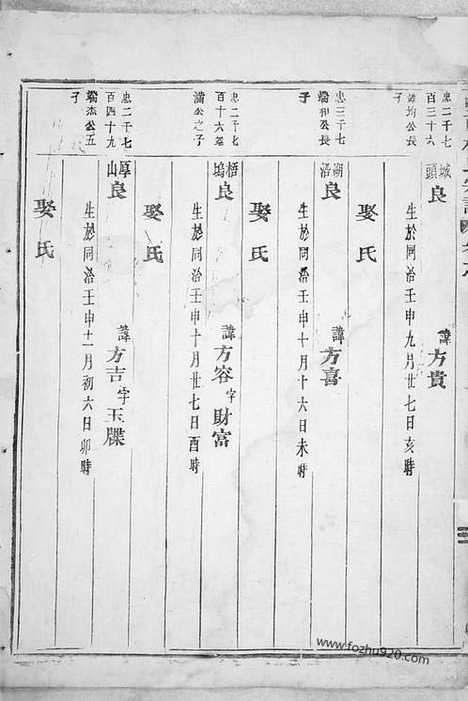 忠二千七
百三十六
公長
子
城頭
良
諱方貴
生於同治壬申九月廿七日亥時
娶氏
忠二千七
公長
子
湖沿
良
諱方喜
生於同治壬申十月十六日未時
娶氏
忠二千七
百十六
滿公之子
梧塢
良
諱方容字財富
生於同治壬申十月廿七日酉時
娶氏
忠二千七
百四十九
公五
子
厚山
良
諱方吉字玉牒
生於同治壬申十一月初六日卯時
娶氏
www.fozhu920.com